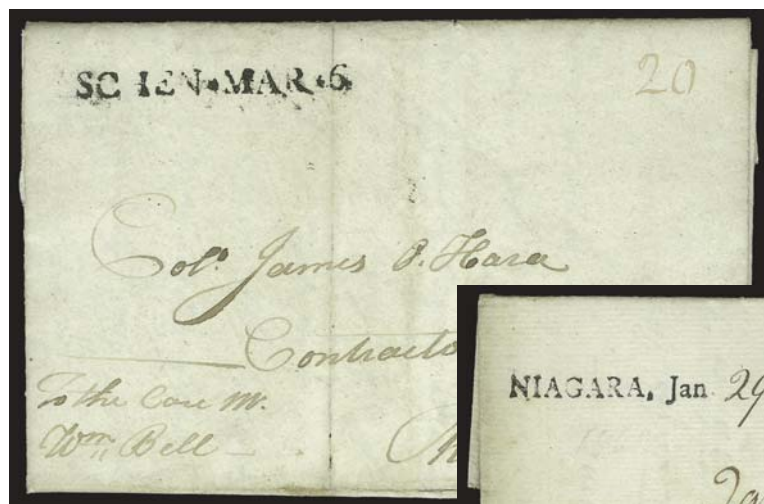 SC IEN•MAR•6
20
Col.o James O. Hara
Contracto
To the Care Mr.
Wm Bell
NIAGARA, Jan 29